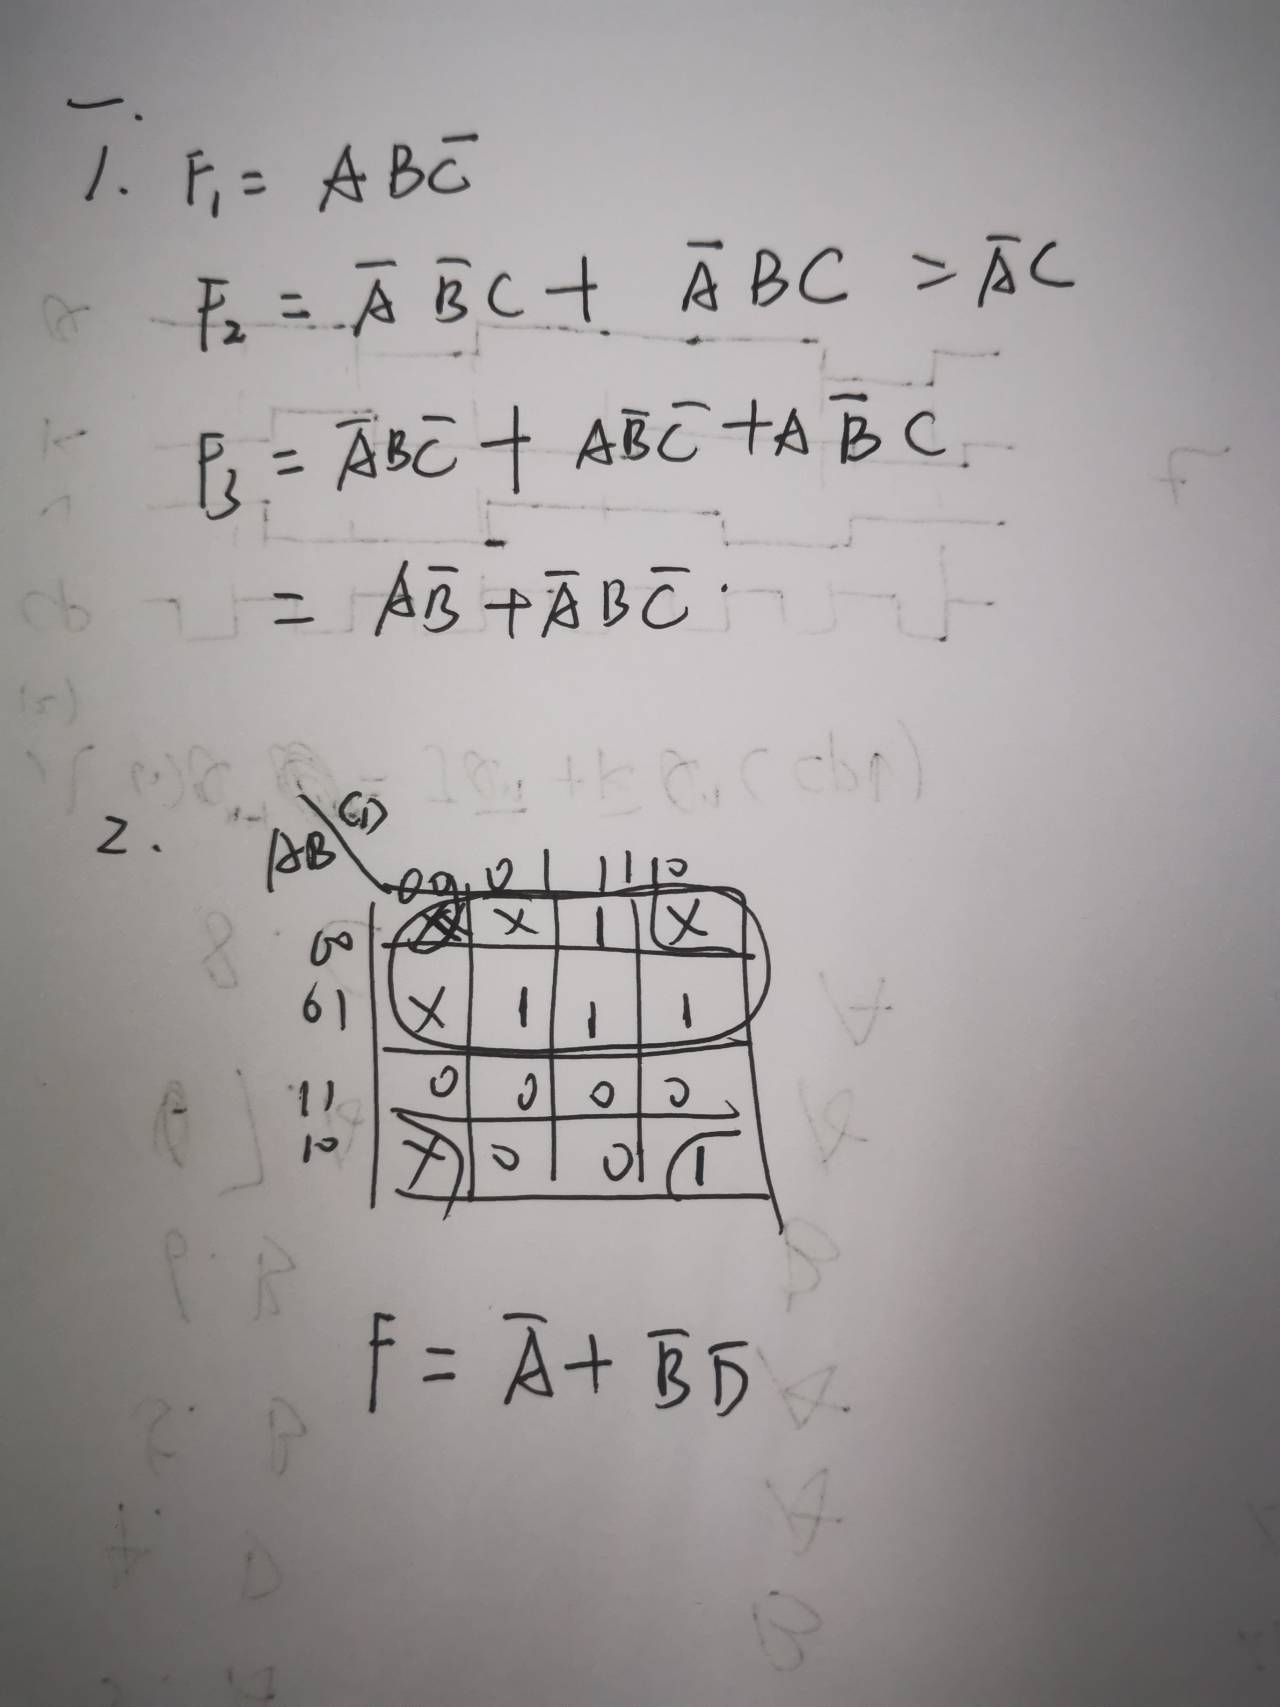 一.
1. F₁ = ABC̅
F₂ = A̅ B̅ C + A̅ B C = A̅ C
F₃ = A̅ B C̅ + A B̅ C̅ + A B̅ C
= A B̅ + A̅ B C̅ .
2. AB CD
00 01 11 10
00 X X 1 X
01 X 1 1 1
11 0 0 0 0
10 X 0 0 1
F = A̅ + B̅ D̅